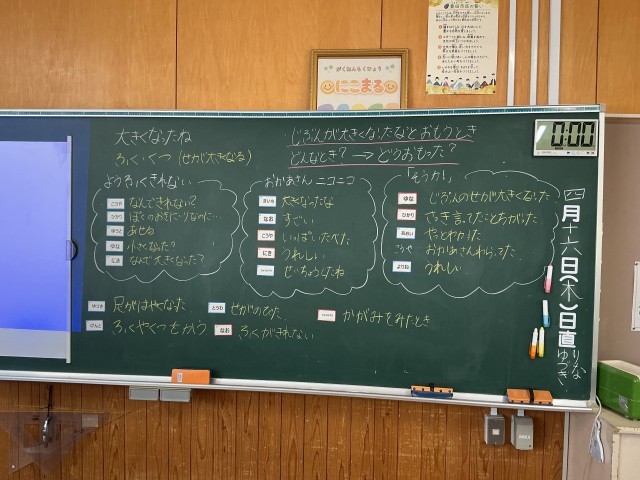 がくねんもくひょう
にこまる
0:00
大きくなったね
ふく・くつ（せが大きくなる）
じぶんが大きくなったなとおもうとき
どんなとき？→どうおもった？
ようふくきれない
こうや なんできれない？
ひかり ぼくのおきにいりなのに…
ゆうと あせる
ゆな 小さくなった？
にき なんで大きくなった？
おかあさん ニコニコ
大きくなったな
なお すごい
こうや いっぱいたべた
にき うれしい
せいちょうしたね
「そうか！」
ゆな じぶんのせが大きくなった
ひかり さっき言ってたことちがった
やっとわかった
こうや おかあさんわらってた
よりね うれしい
ゆづき 足がはやくなった
とうわ せがのびた
かがみをみたとき
けんと ふくやくつをかう
なお ふくがきれない
四月十六日(木)日直
りな
ゆづき